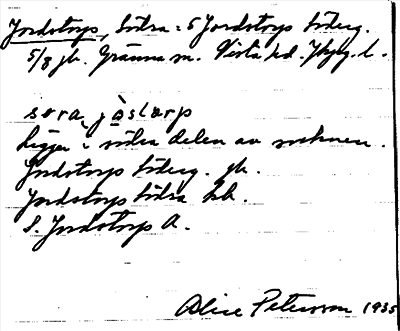 Jordstorp, Södra = S Jordstorp Söderg.
5/8 jb. Gränna sn. Vista hd. Jkpg. l.
søra jòstarp
Ligger i södra delen av socknen.
Jordstorps Söderg. jb.
Jordstorp Södra kb.
S. Jordstorp A.
Alice Petersson 1935